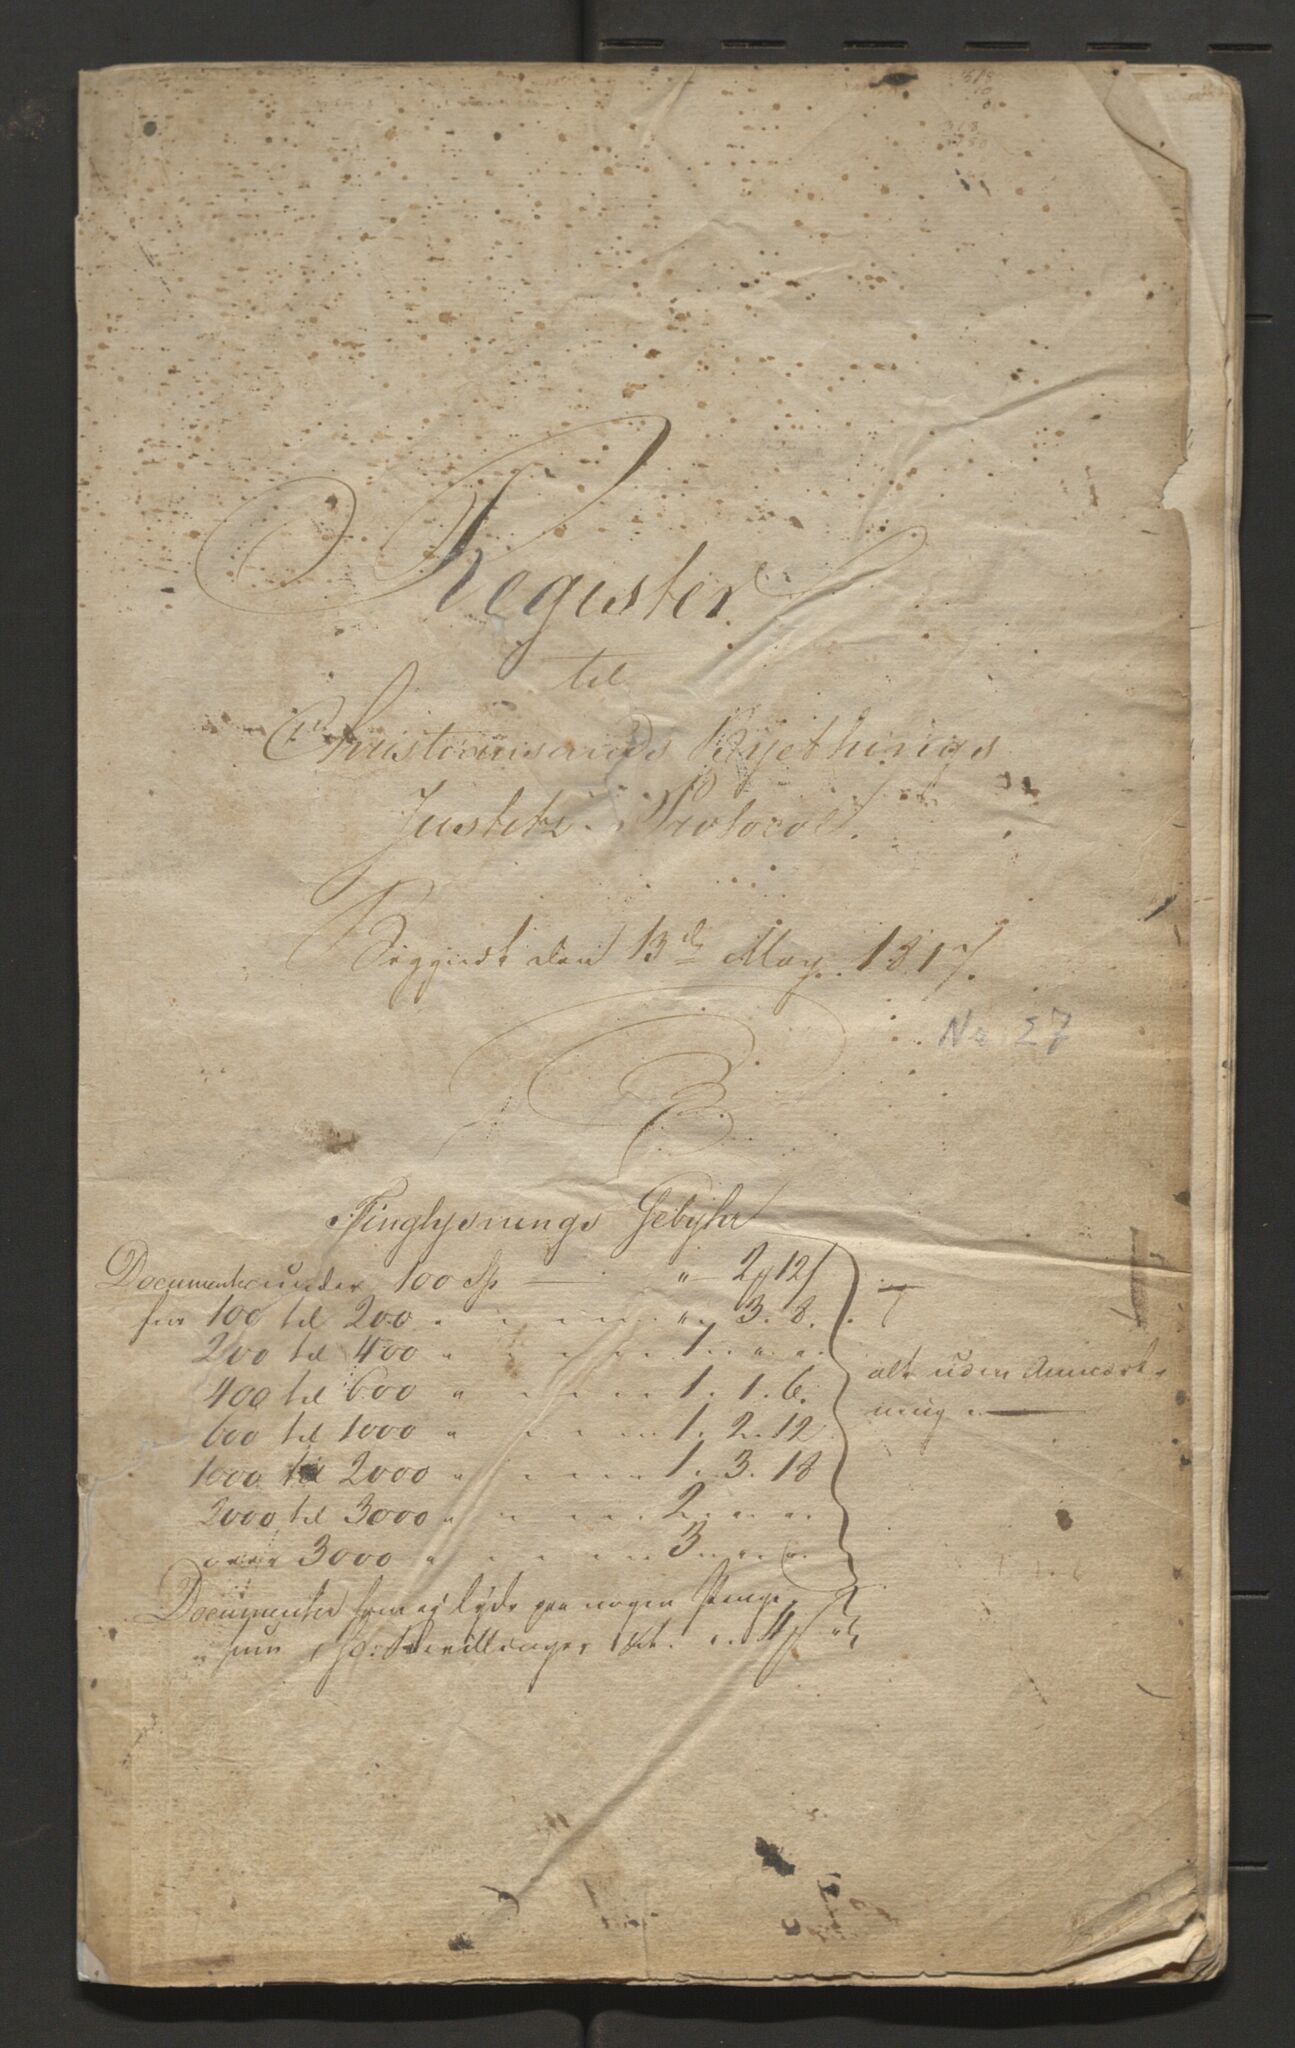 Register
til
Christiansands Byethings
Justits Protocol.
Begyndt den 13de May. 1817.
No 27
Tinglysnings Gebyhr
Documenter under 100 Sp — " 2 12
fra 100 til 200 " " 3. 8.
200 til 400 " 1 " "
400 til 600 " 1. 1. 6.
600 til 1000 " 1. 2. 12
1000 til 2000 " 1. 3. 18
2000 til 3000 " 2 " "
over 3000 " 3 " "
alt uden Anmærk-
ning
Documenter som ej lyde paa nogen Penge
sum, Bevillinger 4